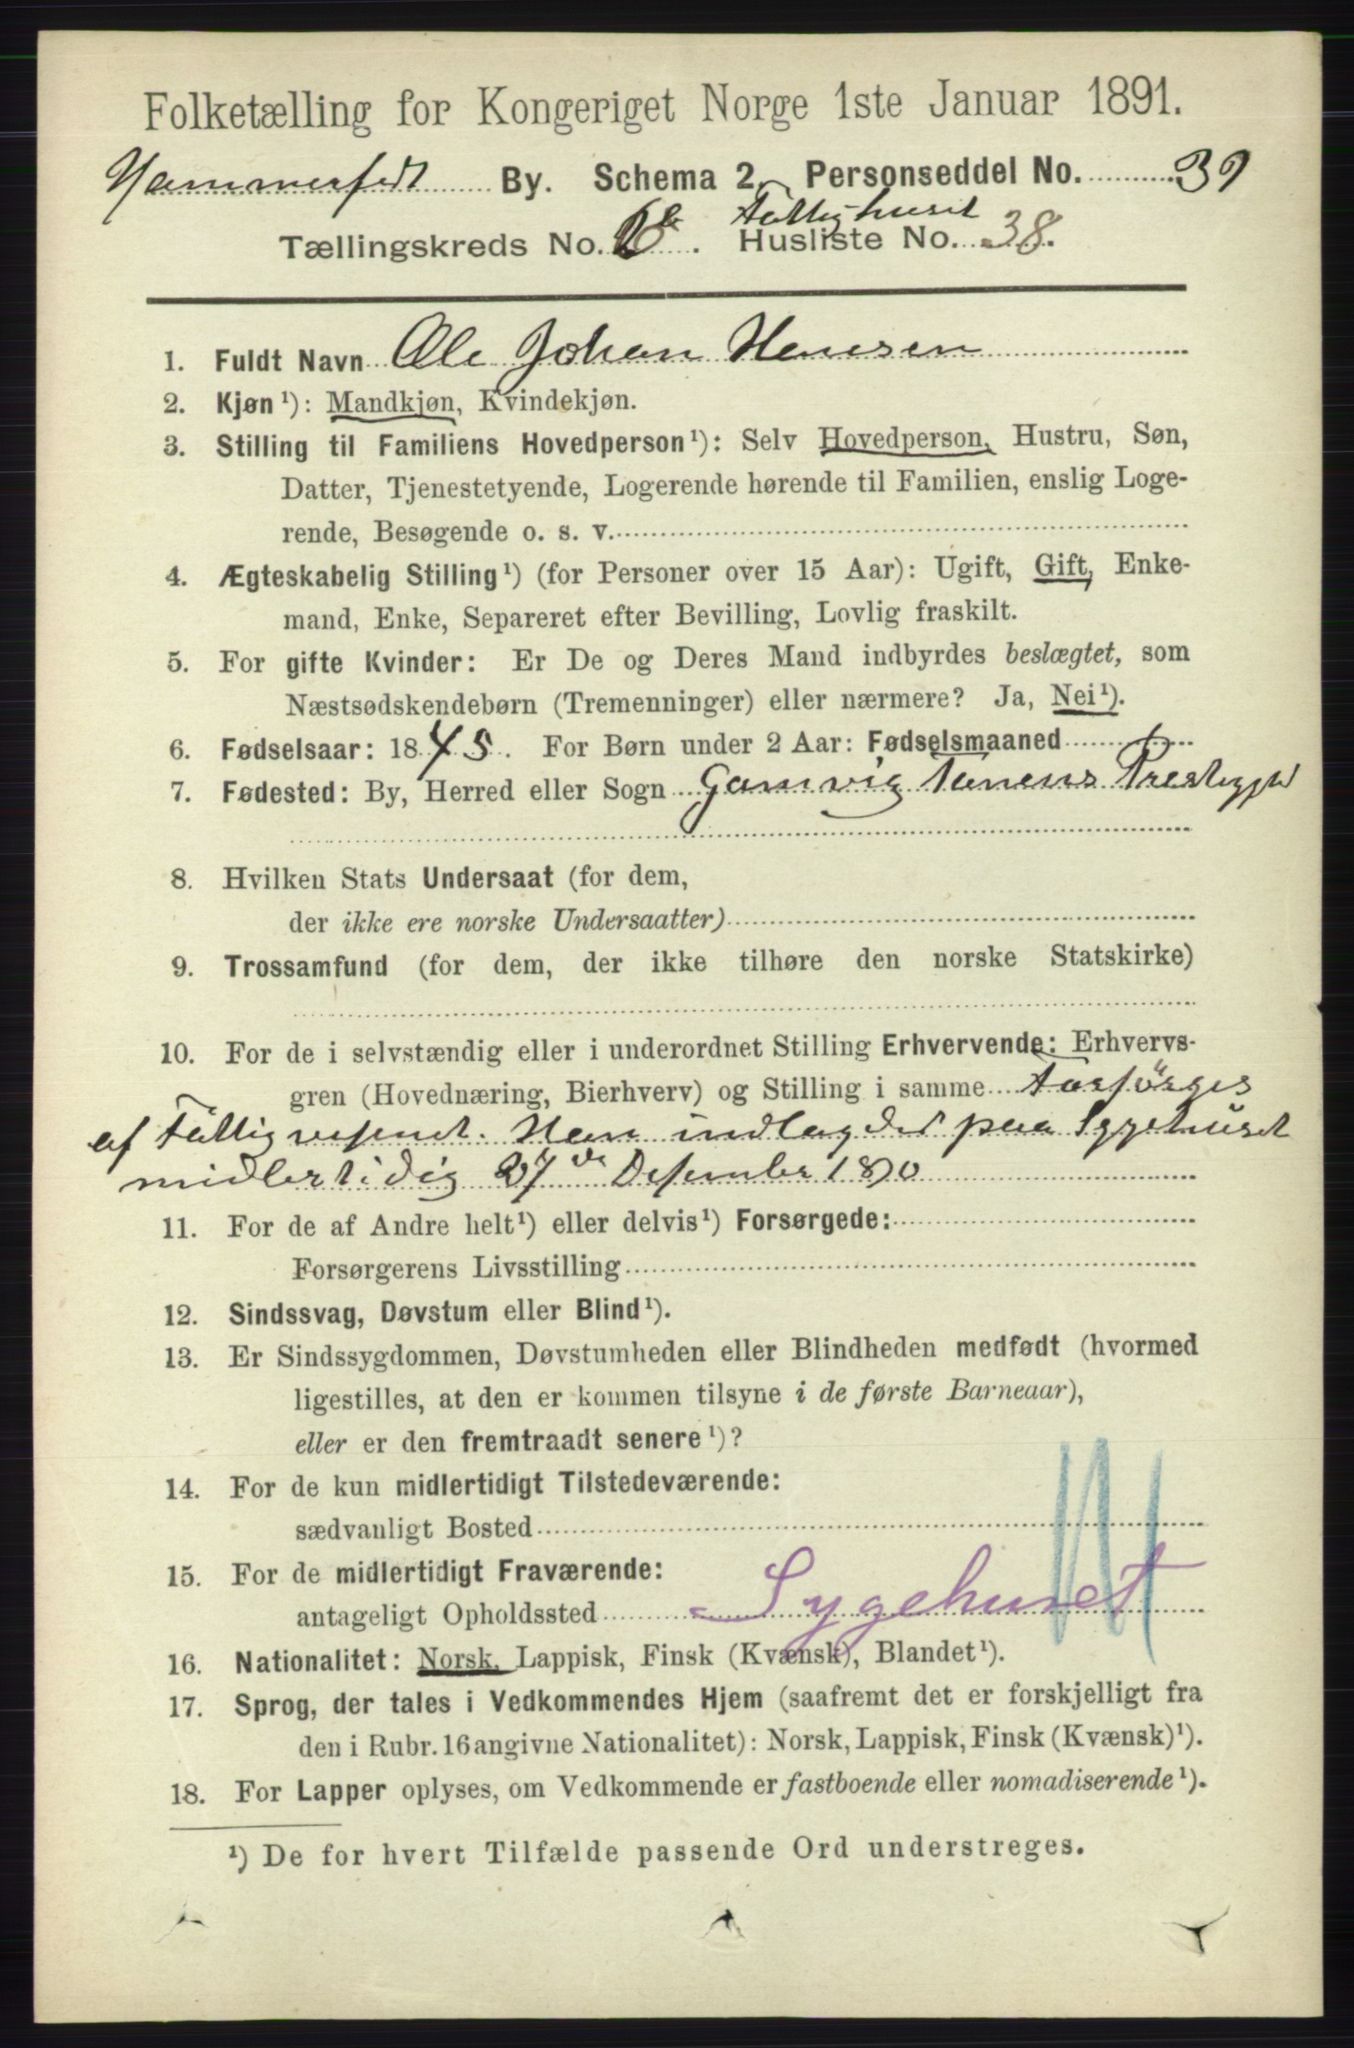 Folketælling for Kongeriget Norge 1ste Januar 1891.
Hammerfest By. Schema 2. Personseddel No. 39
Fattighuset
Tællingskreds No. 6. Husliste No. 38.
1. Fuldt Navn Ole Johan Hansen
2. Kjøn¹): Mandkjøn, Kvindekjøn.
3. Stilling til Familiens Hovedperson¹): Selv Hovedperson, Hustru, Søn,
Datter, Tjenestetyende, Logerende hørende til Familien, enslig Loge-
rende, Besøgende o. s. v.
4. Ægteskabelig Stilling¹) (for Personer over 15 Aar): Ugift, Gift, Enke-
mand, Enke, Separeret efter Bevilling, Lovlig fraskilt.
5. For gifte Kvinder: Er De og Deres Mand indbyrdes beslægtet, som
Næstsødskendebørn (Tremenninger) eller nærmere? Ja, Nei¹).
6. Fødselsaar: 1845. For Børn under 2 Aar: Fødselsmaaned
7. Fødested: By, Herred eller Sogn Gamvig Tanens Prestegjeld
8. Hvilken Stats Undersaat (for dem,
der ikke ere norske Undersaatter)
9. Trossamfund (for dem, der ikke tilhøre den norske Statskirke)
10. For de i selvstændig eller i underordnet Stilling Erhvervende: Erhvervs-
gren (Hovednæring, Bierhverv) og Stilling i samme Forsörges
af Fattigvesenet. Han indlagdes paa Sygehuset
midlertidig 27de Desember 1890
11. For de af Andre helt¹) eller delvis¹) Forsørgede:
Forsørgerens Livsstilling
12. Sindssvag, Døvstum eller Blind¹).
13. Er Sindssygdommen, Døvstumheden eller Blindheden medfødt (hvormed
ligestilles, at den er kommen tilsyne i de første Barneaar),
eller er den fremtraadt senere¹)?
14. For de kun midlertidigt Tilstedeværende:
sædvanligt Bosted
15. For de midlertidigt Fraværende:
antageligt Opholdssted Sygehuset
16. Nationalitet: Norsk, Lappisk, Finsk (Kvænsk), Blandet¹).
17. Sprog, der tales i Vedkommendes Hjem (saafremt det er forskjelligt fra
den i Rubr. 16 angivne Nationalitet): Norsk, Lappisk, Finsk (Kvænsk)¹).
18. For Lapper oplyses, om Vedkommende er fastboende eller nomadiserende¹).
¹) De for hvert Tilfælde passende Ord understreges.